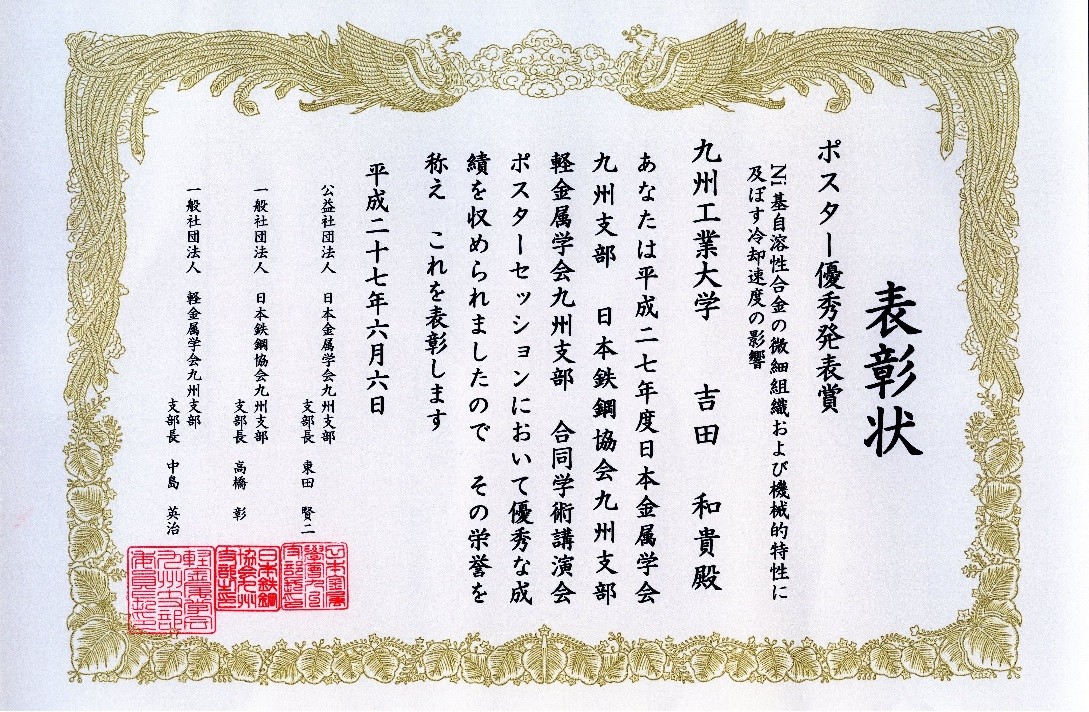 表彰状
ポスター優秀発表賞
Ni基自溶性合金の微細組織および機械的特性に
及ぼす冷却速度の影響
九州工業大学 吉田 和貴殿
あなたは平成二七年度日本金属学会
九州支部 日本鉄鋼協会九州支部
軽金属学会九州支部 合同学術講演会
ポスターセッションにおいて優秀な成
績を収められましたので その栄誉を
称え これを表彰します
平成二十七年六月六日
公益社団法人 日本金属学会九州支部
支部長 東田 賢二
一般社団法人 日本鉄鋼協会九州支部
支部長 高橋 彰
一般社団法人 軽金属学会九州支部
支部長 中島 英治